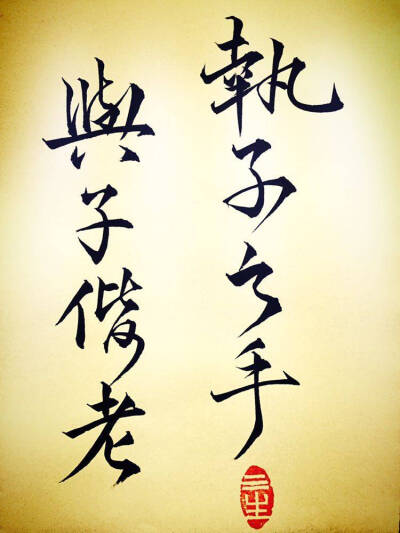 執子之手
與子偕老
三生